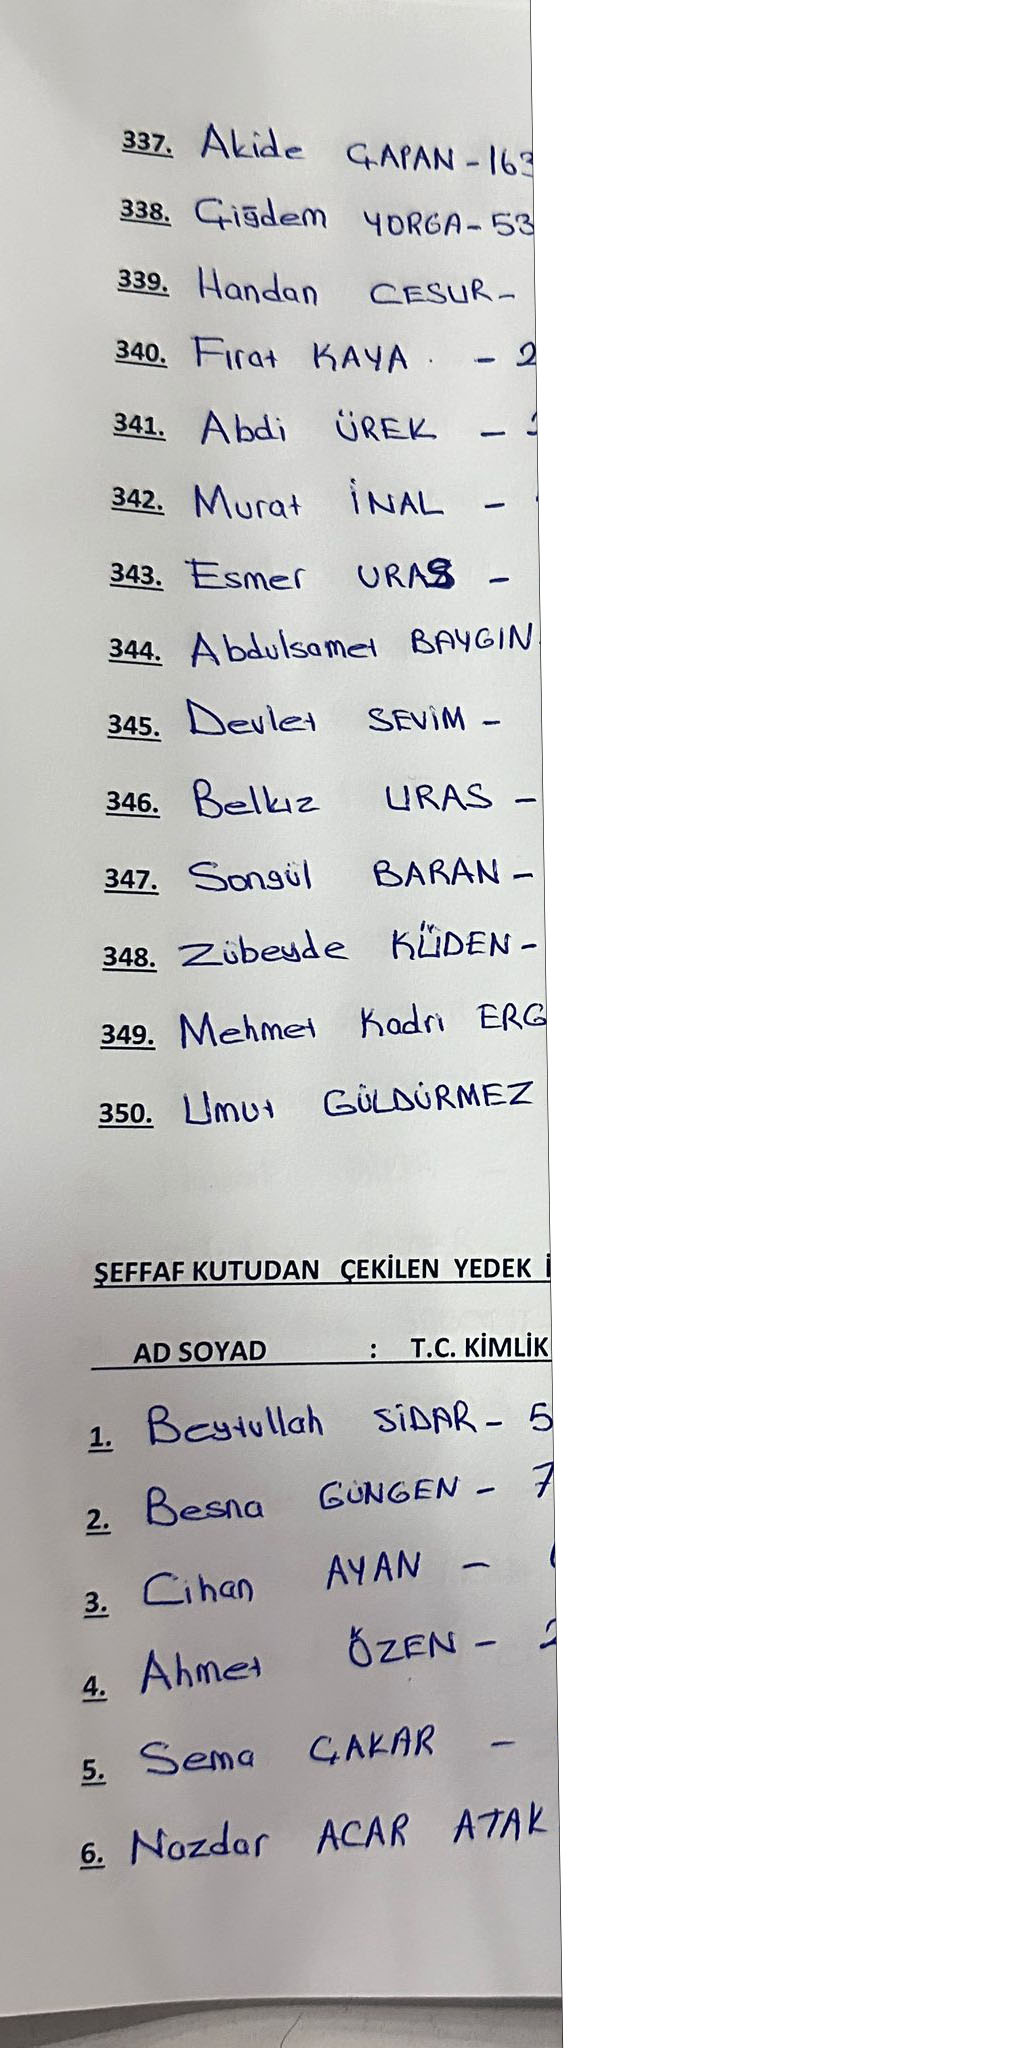 337. Akide ÇAPAN - 163
338. Çiğdem YORGA - 53
339. Handan CESUR -
340. Fırat KAYA - 2
341. Abdi ÜREK -
342. Murat İNAL -
343. Esmer URAS -
344. Abdulsamet BAYGIN
345. Devlet SEVİM -
346. Belkız URAS -
347. Songül BARAN -
348. Zübeyde KÜDEN -
349. Mehmet Kadri ERG
350. Umut GÜLDÜRMEZ
ŞEFFAF KUTUDAN ÇEKİLEN YEDEK İ
AD SOYAD : T.C. KİMLİK
1. Beytullah SİDAR - 5
2. Besna GÜNGEN - 7
3. Cihan AYAN -
4. Ahmet ÖZEN - 2
5. Sema ÇAKAR -
6. Nazdar ACAR ATAK